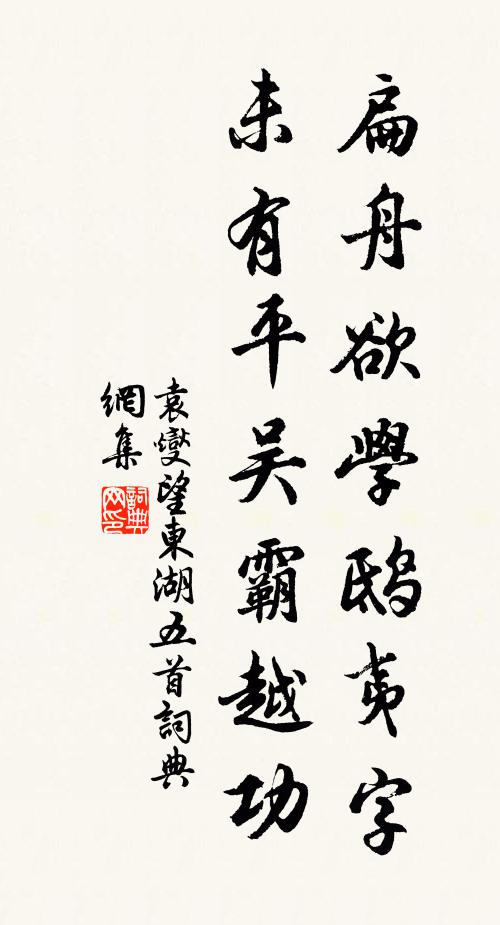 扁舟欲學鴟夷字
未有平吴霸越功
袁燮望東湖五首詞典
網集
詞典网印